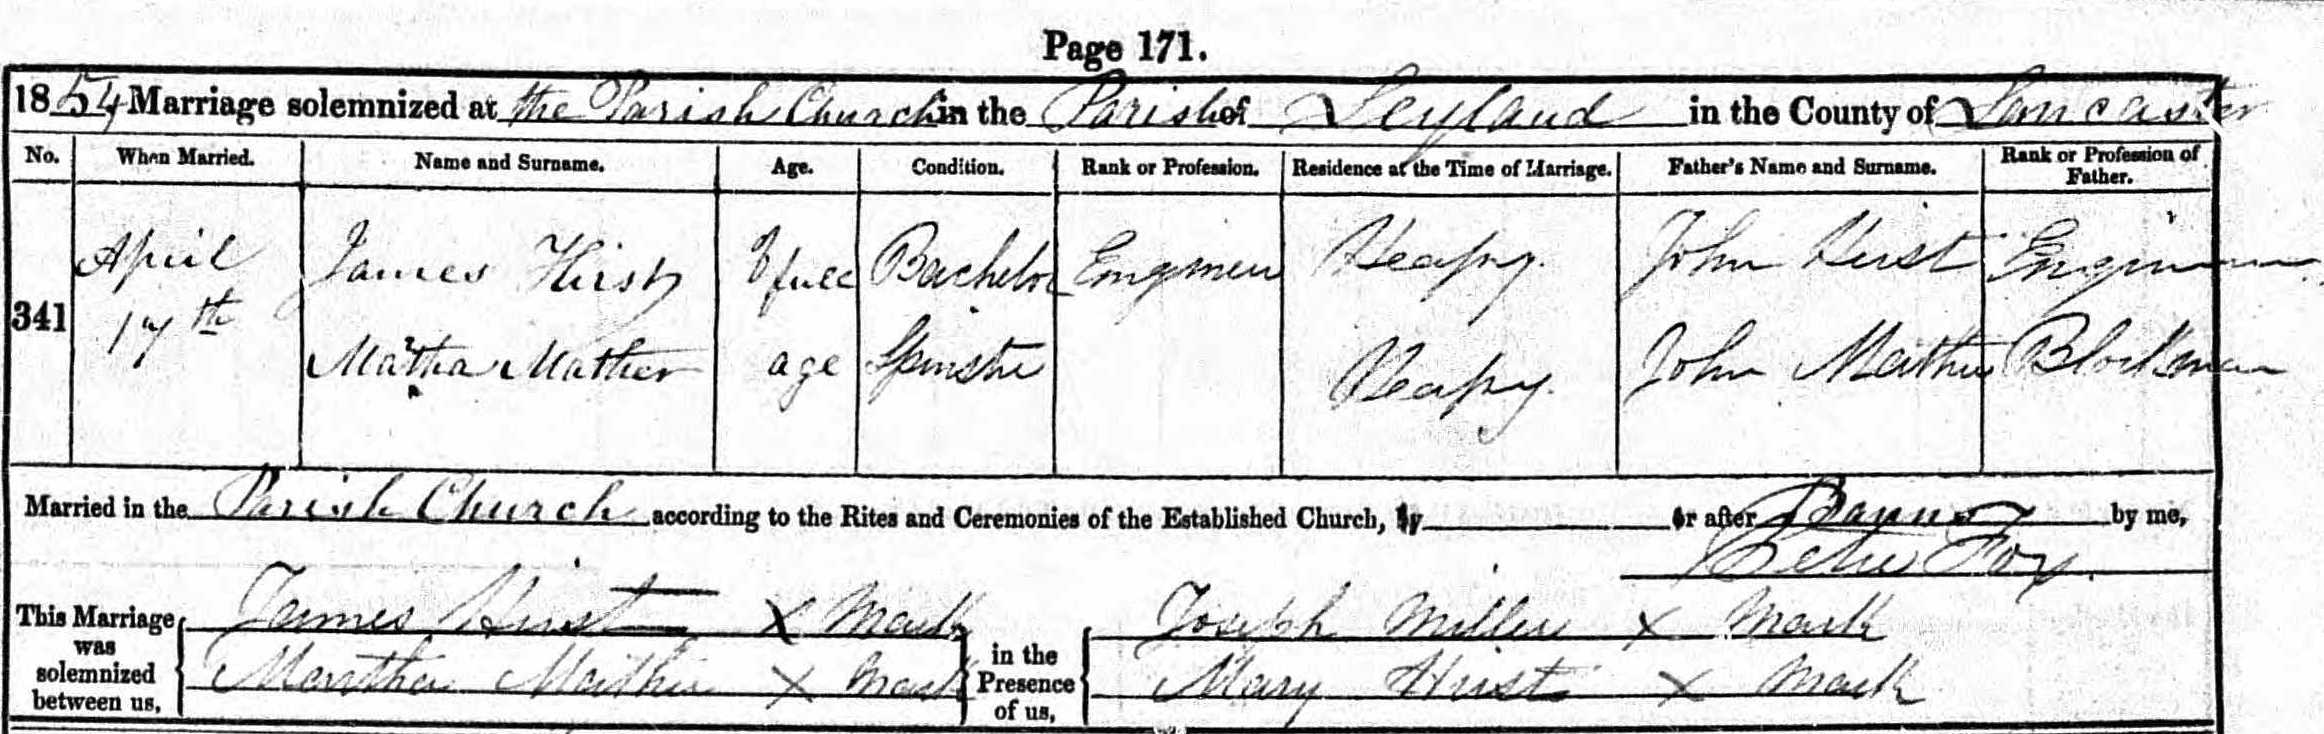 Page 171.
1854 Marriage solemnized at the Parish Church in the Parish of Leyland in the County of Lancaster
No. When Married. Name and Surname. Age. Condition. Rank or Profession. Residence at the Time of Marriage. Father's Name and Surname. Rank or Profession of Father.
341 April 17th James Hirst Of full Bachelor Engineer Heapy. John Hirst Engineer
Martha Mather age Spinster Heapy. John Mather Blockman
Married in the Parish Church according to the Rites and Ceremonies of the Established Church, by or after Banns by me,
Fox.
This Marriage was solemnized between us, James Hirst X Mark in the Presence of us, Joseph Miller X Mark
Martha Mather X Mark Mary Hirst X Mark